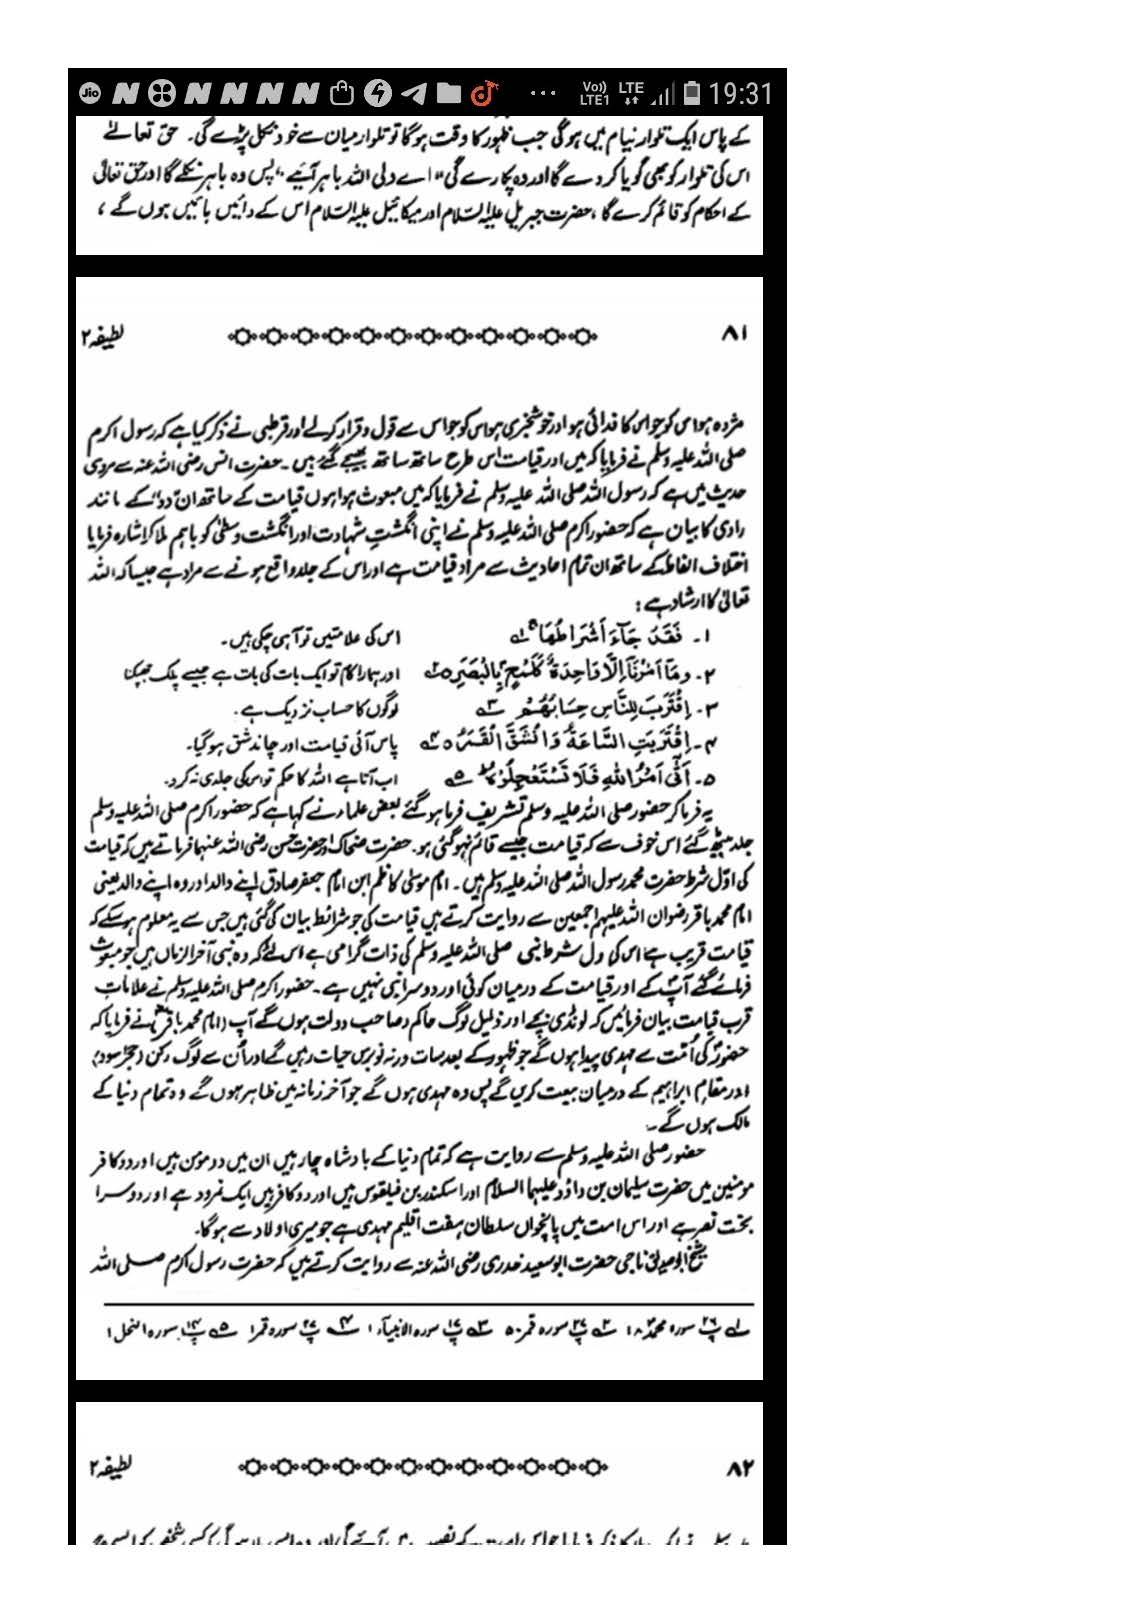 19:31
کے پاس ایک تلوار نیام میں ہوگی جب ظہور کا وقت ہوگا تو تلوار میان سے خود نکل پڑے گی۔ حق تعالےٰ
اس کی تلوار کو بھی گویا کر دے گا اور وہ پکارے گی "اے ولی اللہ باہر آئیے"، پس وہ باہر نکلے گا اور حق تعالیٰ
کے احکام کو قائم کرے گا، حضرت جبریل علیہ السلام اور میکائیل علیہ السلام اس کے دائیں بائیں ہوں گے،
۸۱
لطیفہ ۲
مژدہ ہو اس کو جو اس کا فدائی ہو اور خوشخبری ہو اس کو جو اس سے قول و قرار کرلے اور قرطبی نے ذکر کیا ہے کہ رسول اکرم
صلی اللہ علیہ وسلم نے فرمایا کہ میں اور قیامت اس طرح ساتھ ساتھ بھیجے گئے ہیں۔ حضرت انس رضی اللہ عنہ سے مروی
حدیث میں ہے کہ رسول اللہ صلی اللہ علیہ وسلم نے فرمایا کہ میں مبعوث ہوا ہوں قیامت کے ساتھ ان دو کے مانند
راوی کا بیان ہے کہ حضور اکرم صلی اللہ علیہ وسلم نے اپنی انگشتِ شہادت اور انگشت وسطیٰ کو باہم ملا کر اشارہ فرمایا
اختلاف الفاظ کے ساتھ ان تمام احادیث سے مراد قیامت ہے اور اس کے جلد واقع ہونے سے مراد ہے جیسا کہ اللہ
تعالیٰ کا ارشاد ہے:
۱۔ فَقَدْ جَآءَ اَشْرَاطُهَا ۚ ۱ اس کی علامتیں تو آہی چکی ہیں۔
۲۔ وَمَآ اَمْرُنَآ اِلَّا وَاحِدَةٌ كَلَمْحٍۭ بِالْبَصَرِ ۲ اور ہمارا کام تو ایک بات کی بات ہے جیسے پلک جھپکنا
۳۔ اِقْتَرَبَ لِلنَّاسِ حِسَابُهُمْ ۳ لوگوں کا حساب نزدیک ہے۔
۴۔ اِقْتَرَبَتِ السَّاعَةُ وَانْشَقَّ الْقَمَرُ ۴ پاس آئی قیامت اور چاند شق ہوگیا۔
۵۔ اَتٰٓى اَمْرُ اللّٰهِ فَلَا تَسْتَعْجِلُوْهُ ۵ اب آتا ہے اللہ کا حکم تو اس کی جلدی نہ کرو۔
یہ فرما کر حضور صلی اللہ علیہ وسلم تشریف فرما ہوگئے بعض علماء نے کہا ہے کہ حضور اکرم صلی اللہ علیہ وسلم
جلد بیٹھ گئے اس خوف سے کہ قیامت جیسے قائم نہوگئی ہو۔ حضرت ضحاک اور حضرت حسن رضی اللہ عنہما فرماتے ہیں کہ قیامت
کی اوّل شرط حضرت محمد رسول اللہ صلی اللہ علیہ وسلم ہیں۔ امام موسیٰ کاظم ابن امام جعفر صادق اپنے والد اور وہ اپنے والد یعنی
امام محمد باقر رضوان اللہ علیہم اجمعین سے روایت کرتے ہیں قیامت کی جو شرائط بیان کی گئی ہیں جس سے یہ معلوم ہوسکے کہ
قیامت قریب ہے اس کی اول شرط نبی صلی اللہ علیہ وسلم کی ذات گرامی ہے اس لئے کہ وہ نبی آخر الزماں ہیں جو مبعوث
فرمائے گئے آپ کے اور قیامت کے درمیان کوئی اور دوسرا نبی نہیں ہے۔ حضور اکرم صلی اللہ علیہ وسلم نے علاماتِ
قرب قیامت بیان فرمائیں کہ لونڈی بچے اور ذلیل لوگ حاکم و صاحب دولت ہوں گے آپ (امام محمد باقر) نے فرمایا کہ
حضور کی اُمّت سے مہدی پیدا ہوں گے جو ظہور کے بعد سات ورنہ نو برس حیات رہیں گے اور اُن سے لوگ رکن (حجر اسود)
اور مقام ابراہیم کے درمیان بیعت کریں گے پس وہ مہدی ہوں گے جو آخر زمانہ میں ظاہر ہوں گے وہ تمام دنیا کے
مالک ہوں گے۔
حضور صلی اللہ علیہ وسلم سے روایت ہے کہ تمام دنیا کے بادشاہ چار ہیں ان میں دو مومن ہیں اور دو کافر
مومنین میں حضرت سلیمان بن داؤد علیہما السلام اور اسکندر بن فیلقوس ہیں اور دو کافر ہیں ایک نمرود ہے اور دوسرا
بخت نصر ہے اور اس امت میں پانچواں سلطان ہفت اقلیم مہدی ہے جو میری اولاد سے ہوگا۔
ناجی حضرت ابو سعید خدری رضی اللہ عنہ سے روایت کرتے ہیں کہ حضرت رسول اکرم صلی اللہ
۱ پ ۲۶ سورہ محمد ۱۸ ۲ پ ۲۷ سورہ قمر ۵۰ ۳ پ ۱۷ سورہ الانبیآء ۱ ۴ پ ۲۷ سورہ قمر ۱ ۵ پ ۱۴ سورہ النحل ۱
۸۲
لطیفہ ۲